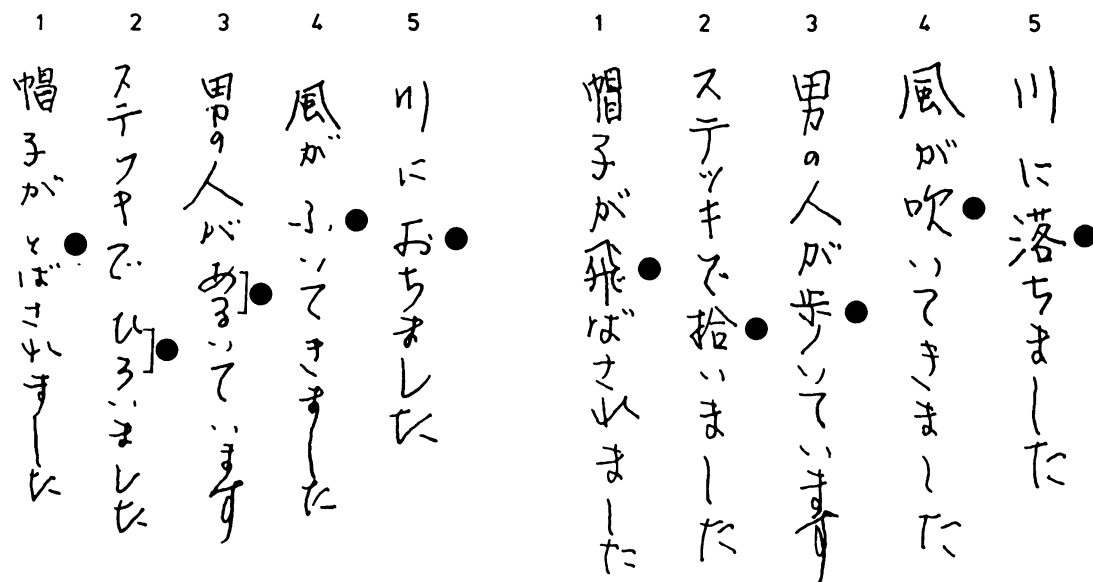 1 帽子がとばされました
2 ステッキでひろいました
3 男の人があるいています
4 風がふいてきました
5 川におちました
1 帽子が飛ばされました
2 ステッキで拾いました
3 男の人が歩いています
4 風が吹いてきました
5 川に落ちました